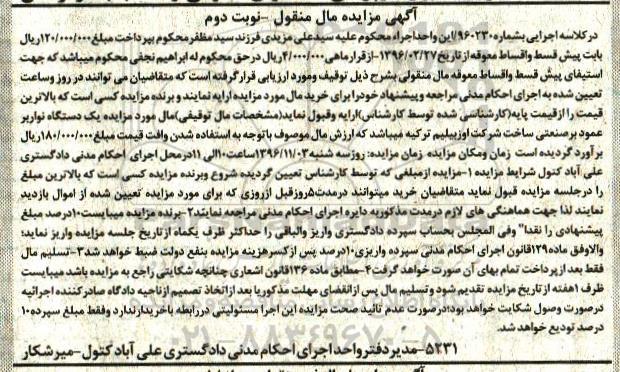 آگهی مزایده مال منقول -نوبت دوم
در کلاسه اجرایی بشماره ۹۶۰۲۳۰/این واحد اجراء محکوم علیه سیدعلی مزیدی فرزند سید مظفر محکوم بپرداخت مبلغ ۱۲۰/۰۰۰/۰۰۰ریال
بابت پیش قسط واقساط معوقه از تاریخ ۱۳۹۶/۰۲/۲۷-از قرار ماهی ۴/۰۰۰/۰۰۰ریال در حق محکوم له ابراهیم نجفی محکوم میباشد که جهت
استیفای پیش قسط واقساط معوقه مال منقولی بشرح ذیل توقیف ومورد ارزیابی قرار گرفته است که متقاضیان می توانند در روز وساعت
تعیین شده به اجرای احکام مدنی مراجعه وپیشنهاد خود را برای خرید مال مورد مزایده ارایه نمایند و برنده مزایده کسی است که بالاترین
قیمت را از قیمت پایه(کارشناسی شده توسط کارشناس)ارایه وقبول نماید(مشخصات مال توقیفی)مال مورد مزایده یک دستگاه نواربر
عمود بر صنعتی ساخت شرکت اوزبیلیم ترکیه میباشد که ارزش مال موصوف با توجه به استفاده شدن وافت قیمت مبلغ ۱۸۰/۰۰۰/۰۰۰ریال
برآورد گردیده است زمان ومکان مزایده زمان مزایده: روز سه شنبه ۱۳۹۶/۱۱/۰۳ساعت ۱۰الی ۱۱در محل اجرای احکام مدنی دادگستری
علی آباد کتول شرایط مزایده ۱-مزایده از مبلغی که توسط کارشناس تعیین گردیده شروع وبرنده مزایده کسی است که بالاترین مبلغ
را در جلسه مزایده قبول نماید متقاضیان خرید میتوانند در مدت ۵روز قبل از روزی که برای مورد مزایده تعیین شده از اموال بازدید
نمایند لذا جهت هماهنگی های لازم در مدت مذکور به دایره اجرای احکام مدنی مراجعه نمایند۲-برنده مزایده میبایست ۱۰درصد مبلغ
پیشنهادی را نقدا" وفی المجلس بحساب سپرده دادگستری واریز والباقی را حداکثر ظرف یکماه از تاریخ جلسه مزایده واریز نماید؛
والا وفق ماده ۱۲۹قانون اجرای احکام مدنی سپرده واریزی ۱۰درصد پس از کسر هزینه مزایده بنفع دولت ضبط خواهد شد۳-تسلیم مال
فقط بعد از پرداخت تمام بهای آن صورت خواهد گرفت۴-مطابق ماده ۱۳۶قانون اشعاری چنانچه شکایتی راجع به مزایده باشد میبایست
ظرف ۱هفته از تاریخ مزایده تقدیم شود وتسلیم مال پس از انقضای مهلت مذکور یا بعد از اتخاذ تصمیم از ناحیه دادگاه صادر کننده اجرائیه
در صورت وصول شکایت خواهد بود؛در صورت عدم تائید صحت مزایده این اجرا مسئولیتی در رابطه با خریدار ندارد وفقط مبلغ سپرده ۱۰
درصد تودیع خواهد شد.
۵۲۳۱-مدیر دفتر واحد اجرای احکام مدنی دادگستری علی آباد کتول-میرشکار
۰۲۱-۸۸۳۴۹۶۷۰-۵